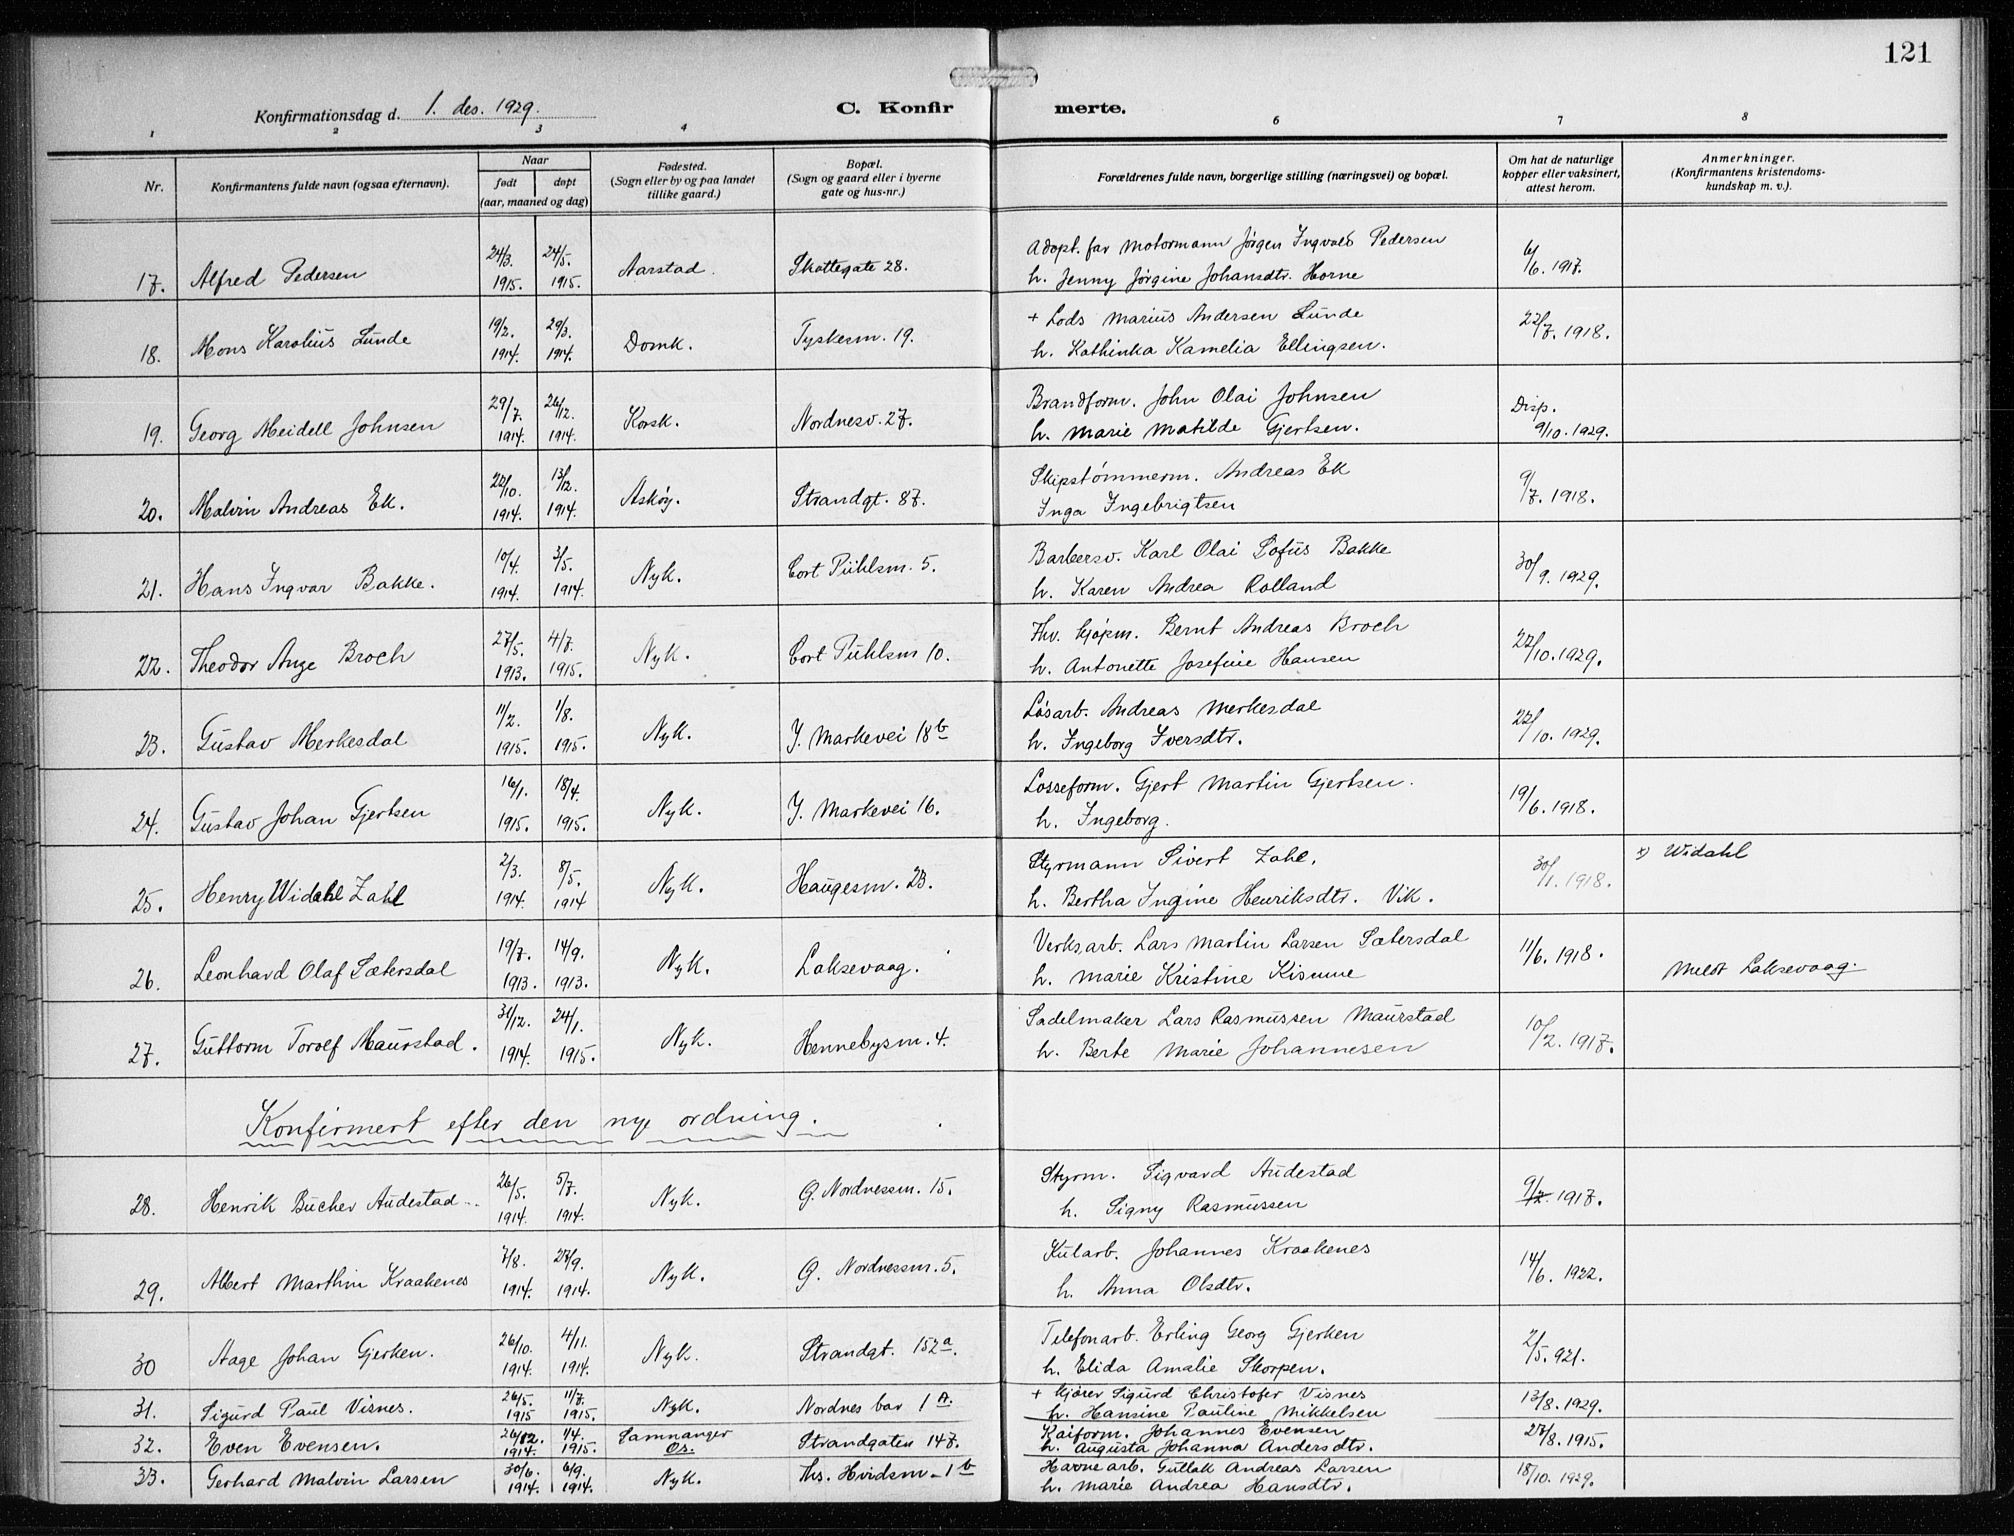 121
Konfirmationsdag d. 1. des. 1929. C. Konfirmerte.
1 2 3 4 6 7 8
Nr. Konfirmantens fulde navn (ogsaa efternavn). Naar født døpt (aar, maaned og dag) Fødested. (Sogn eller by og paa landet tillike gaard.) Bopæl. (Sogn og gaard eller i byerne gate og hus-nr.) Forældrenes fulde navn, borgerlige stilling (næringsvei) og bopæl. Om hat de naturlige kopper eller vaksinert, attest herom. Anmerkninger. (Konfirmantens kristendoms-kundskap m. v.).
17. Alfred Pedersen 24/3. 1915. 24/5. 1915. Aarstad. Skottegate 28. Adopt. far Motormann Jørgen Ingvald Pedersen
h. Jenny Jørgine Johansdtr. Horne 6/6. 1917.
18. Mons Karolius Lunde 19/2. 1914. 29/3. 1914. Domk. Tyskesm. 19. + Lods Marius Andersen Lunde
h. Kathinka Kamelia Ellingsen. 22/7. 1918.
19. Georg Meidell Johnsen 29/7. 1914. 26/12. 1914. Korsk. Nordnesv. 27. Brandform. John Olai Johnsen
h. Marie Matilde Gjertsen. Disp. 9/10. 1929.
20. Malvin Andreas Ek. 22/10. 1914. 13/12. 1914. Askøy. Strandgt. 87. Skipstømmerm. Andreas Ek
Inga Ingebrigtsen 9/7. 1918.
21. Hans Ingvar Bakke. 10/4. 1914. 3/5. 1914. Nyk. Cort Pühlsm. 5. Barbersv. Karl Olai Sofus Bakke
h. Karen Andrea Rolland 30/9. 1929.
22. Theodor Ange Broch 27/5. 1913. 4/7. 1915. Nyk. Cort Pühlsm 10. Fhv. kjøpm. Bernt Andreas Broch
h. Antonette Josefine Hansen 22/10. 1929.
23. Gustav Merkesdal 11/2. 1915. 1/8. 1915. Nyk. Y. Markevei 18b Løsarb. Andreas Merkesdal
h. Ingeborg Iversdtr. 22/10. 1929.
24. Gustav Johan Gjertsen 16/1. 1915. 18/4. 1915. Nyk. Y. Markevei 16. Losseform. Gjert Martin Gjertsen.
h. Ingeborg. 19/6. 1918.
25. Henry Widahl Zahl 2/3. 1914. 8/5. 1914 Nyk. Haugesm. 23. Styrmann Sivert Zahl,
h. Bertha Ingine Henriksdtr. Vik. 30/1. 1918. x) Widahl
26. Leonhard Olaf Sætersdal 19/7. 1913. 14/9. 1913. Nyk. Laksevaag. Verks,arb. Lars Martin Larsen Sætersdal
h. Marie Kristine Kismue 11/6. 1918. Meldt Laksevaag.
27. Guttorm Torolf Maurstad. 31/12. 1914. 24/1. 1915. Nyk. Hennebysm. 4. Sadelmaker Lars Rasmussen Maurstad
h. Berte Marie Johannesen 10/2. 1917.
Konfirmert efter den nye ordning.
28. Henrik Bucher Audestad 26/5. 1914. 5/7. 1914. Nyk. G. Nordnessm. 15. Styrm. Sigvard Audestad
h. Signy Rasmussen 9/7. 1917.
29. Albert Marthin Kraakenes 7/8. 1914. 27/9. 1914. Nyk. G. Nordnessm. 5. Kularb. Johannes Kraakenes
h. Anna Olsdtr. 14/6. 1922.
30 Aage Johan Gjerken. 26/10. 1914. 4/11. 1914. Nyk. Strandgt. 152a. Telefonarb. Erling Georg Gjerken
h. Elida Amalie Skorpen. 2/5. 921.
31. Sigurd Paul Visnes. 26/5. 1915 11/7. 1915. Nyk. Nordnes bar 1A. + Kjører Sigurd Christofer Visnes
h. Hansine Pauline Mikkelsen 13/8. 1929.
32. Even Evensen. 26/12. 1914. 1/4. 1915. Samnanger Os. Strandgaten 147. Kaiform. Johannes Evensen
h. Augusta Johanna Andersdtr. 27/8. 1915.
33. Gerhard Malvin Larsen 30/6. 1914. 6/9. 1914. Nyk. Ths. Hvidsm. 1b Havnearb. Gullak Andreas Larsen
h. Marie Andrea Hansdtr. 18/10. 1929.